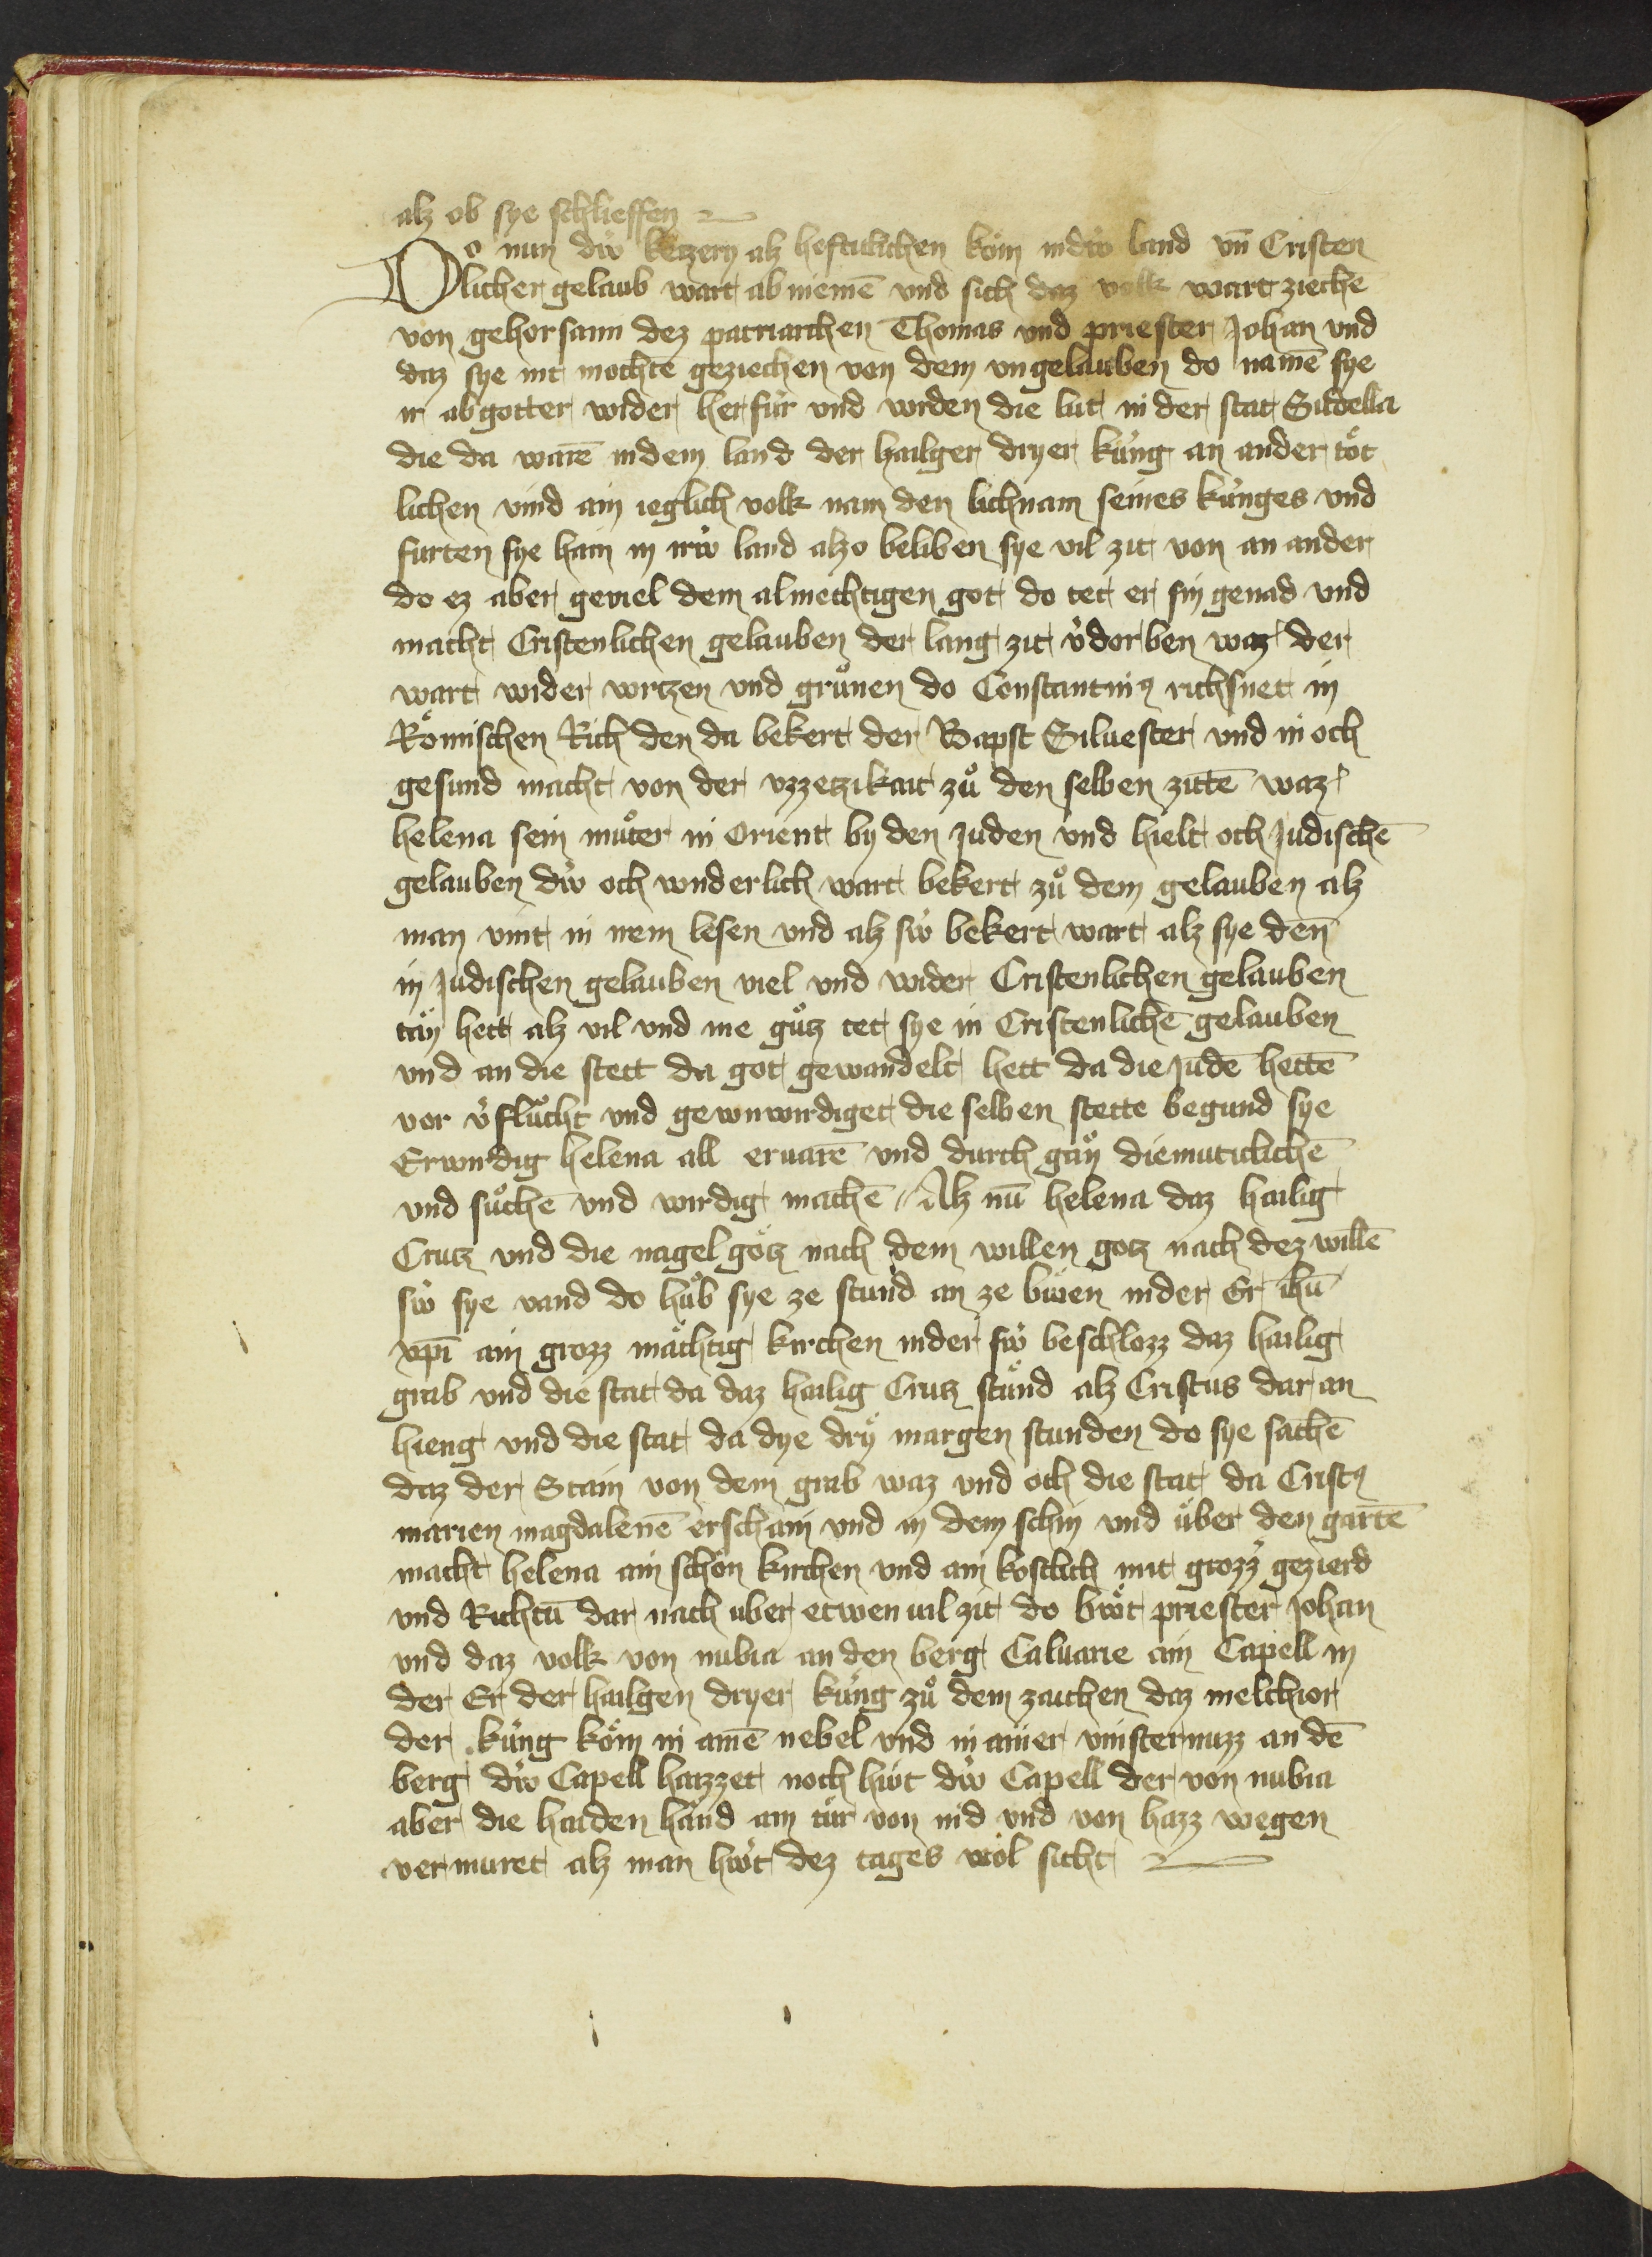 alz ob sye schlieffen
Do nun diw ketzery alz heftiklichen kom in diw land vn̄ Cristen
licher gelaub wart ab niemē vnd sich daz volk wart ziechē
von gehorsam dez patriarchen Thomas vnd priester Johan vnd
daz sye nit mochtē geziechen von dem vngelauben do namē sye
ir abgotter wider her für vnd wrden die lüt in der stat Sudella
die da warē in dem land der hailger dryer küng an ander töt
lichen vind ain ieglich volk nam den lichnam seines künges vnd
furten sye hain in iriw land alzo beliben sye vil zit von an ander
do ez aber geviel dem almechtigen got do tet er sin genad vnd
macht Cristenlichen gelauben der lang zit v̓dorben waz der
wart wider wrtzen vnd grůnen do Constantinꝰ richsnet in
Römischen Rich den da bekert der Bapst Siluester vnd in och
gesund macht von der vzzetzikait zů den selben zittē waz
helena sein můter in orient by den juden vnd hielt och judischē
gelauben diw och wnderlich wart bekert zů dem gelauben alz
man vint in irem lesen vnd alz siw bekert wart alz sye den̄
in judischen gelauben viel vnd wider Cristenlichen gelauben
tän hett alz vil vnd me gůtz tet sye in Cristenlichē gelauben
vnd an die stett da got gewandelt hett da die judē hettē
vor v̓flůcht vnd gewnwirdiget die selben stette begund sye
Erwirdig helena all ervarē vnd durch gän diemutiklichē
vnd sůchē vnd wirdig machē // Alz nū helena daz hailig
Crutz vnd die nagel götz nach dem willen gotz nach dez willē
siw sye vand do hůb sye ze stund an ze biwen in der Er ihū
xp̄i ain grozz mächtig kirchen in der siw beschlozz daz hailig
grab vnd die stat da daz hailig Crutz stůnd alz Cristus dar an
hieng vnd die stat da dye dry margen stunden do sye sachē
daz der Stain von dem grab waz vnd och die stat da Cristꝰ
marien magdalenē erschain vnd in dem schin vnd über den gartē
macht helena ain schön kirchen vnd ain kostlich mit grozz̓ gezierd
vnd Richtū dar nach uber etwen vil zit do biwt priester Johan
vnd daz volk von nubia an den berg Caluarie ain Capell in
der Er der hailgen dryer küng zů dem zaichen daz melchior
der küng kom in ainē nebel vnd in ainer vinsternuzz an dē
berg diw Capell haizzet noch hiwt diw Capell der von nubia
aber die haiden händ ain tür von nid vnd von hazz wegen
vermuret alz man hiwt dez tages wol sicht